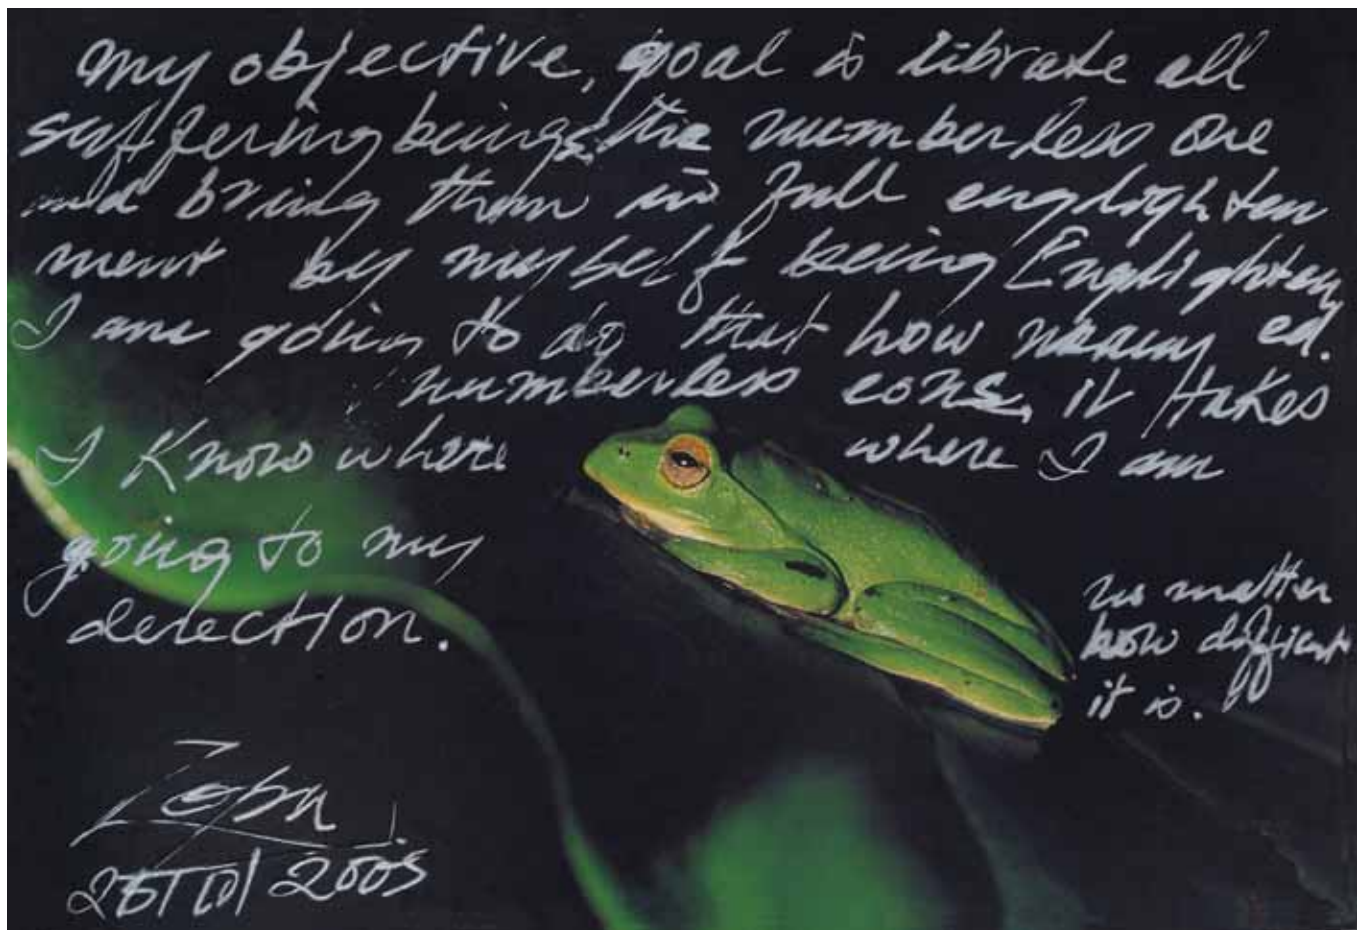 my objective, goal is librate all
suffering beings, the numberless one
and bring them in full englighten
ment by myself being Englighten
I am going to do that how many ed.
numberless eons, it takes
I Know where where I am
going to my
derection.
no matter
how difficult
it is.
Zopa
2005